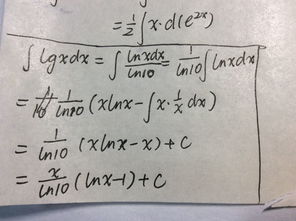 = 1/2 ∫ x·d(e^{2x})
∫ lgxdx = ∫ lnxdx/ln10 = 1/ln10 ∫ lnxdx
= 1/ln10 (xlnx - ∫ x·1/x dx)
= 1/ln10 (xlnx - x) + C
= x/ln10 (lnx - 1) + C